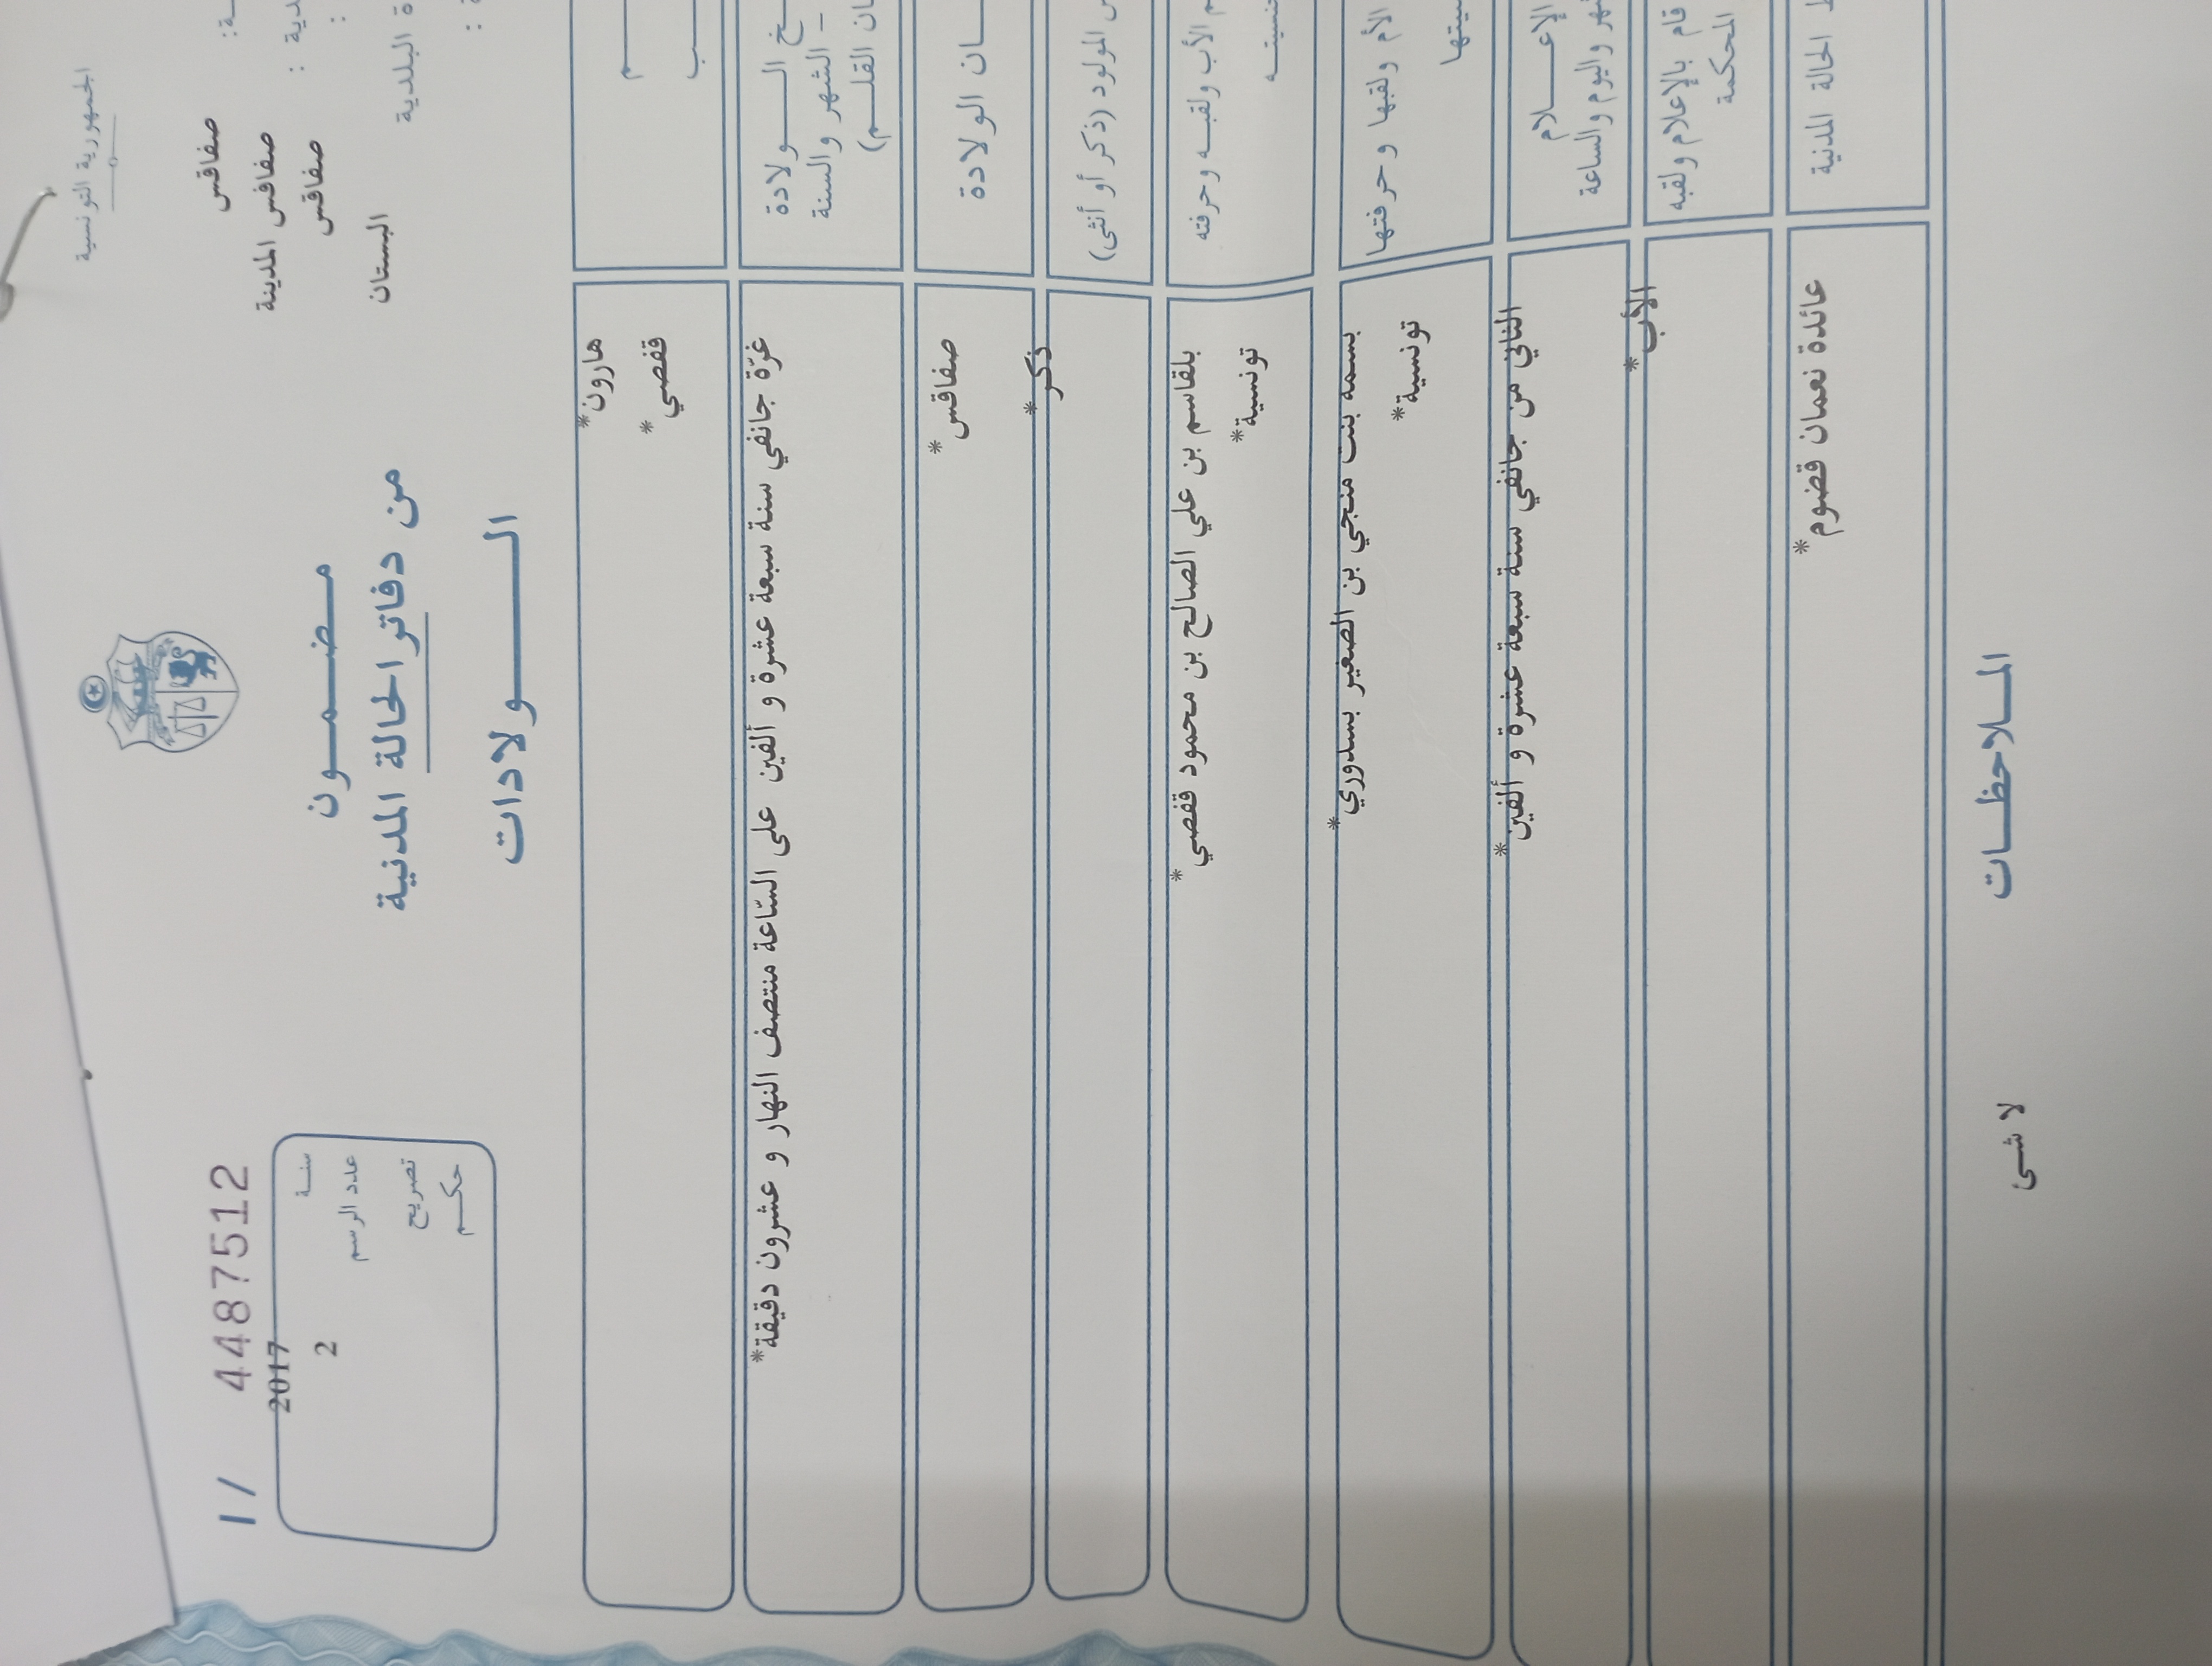 الجمهورية التونسية
صفاقس
صفاقس المدينة
صفاقس
البستان
ة البلدية
مضمون
من دفاتر الحالة المدنية
الولادات
I / 4487512
سنة 2017
عدد الرسم 2
تصريح
حكم
هارون*
قفصي*
خ الولادة
الشهر والسنة
ان القلم)
غرّة جانفي سنة سبعة عشرة و ألفين على السّاعة منتصف النهار و عشرون دقيقة*
ان الولادة
صفاقس*
س المولود (ذكر أو أنثى)
ذكر*
م الأب ولقبه وحرفته
بلقاسم بن علي الصالح بن محمود قفصي*
تونسية*
الأم ولقبها وحرفتها
بسمه بنت منجي بن الصغير بسدوري*
تونسية*
الإعلام
هر واليوم والساعة
الثاني من جانفي سنة سبعة عشرة و ألفين*
قام بالإعلام ولقبه
المحكمة
الأب*
ط الحالة المدنية
عائدة نعمان قضوم*
الملاحظات
لا شئ